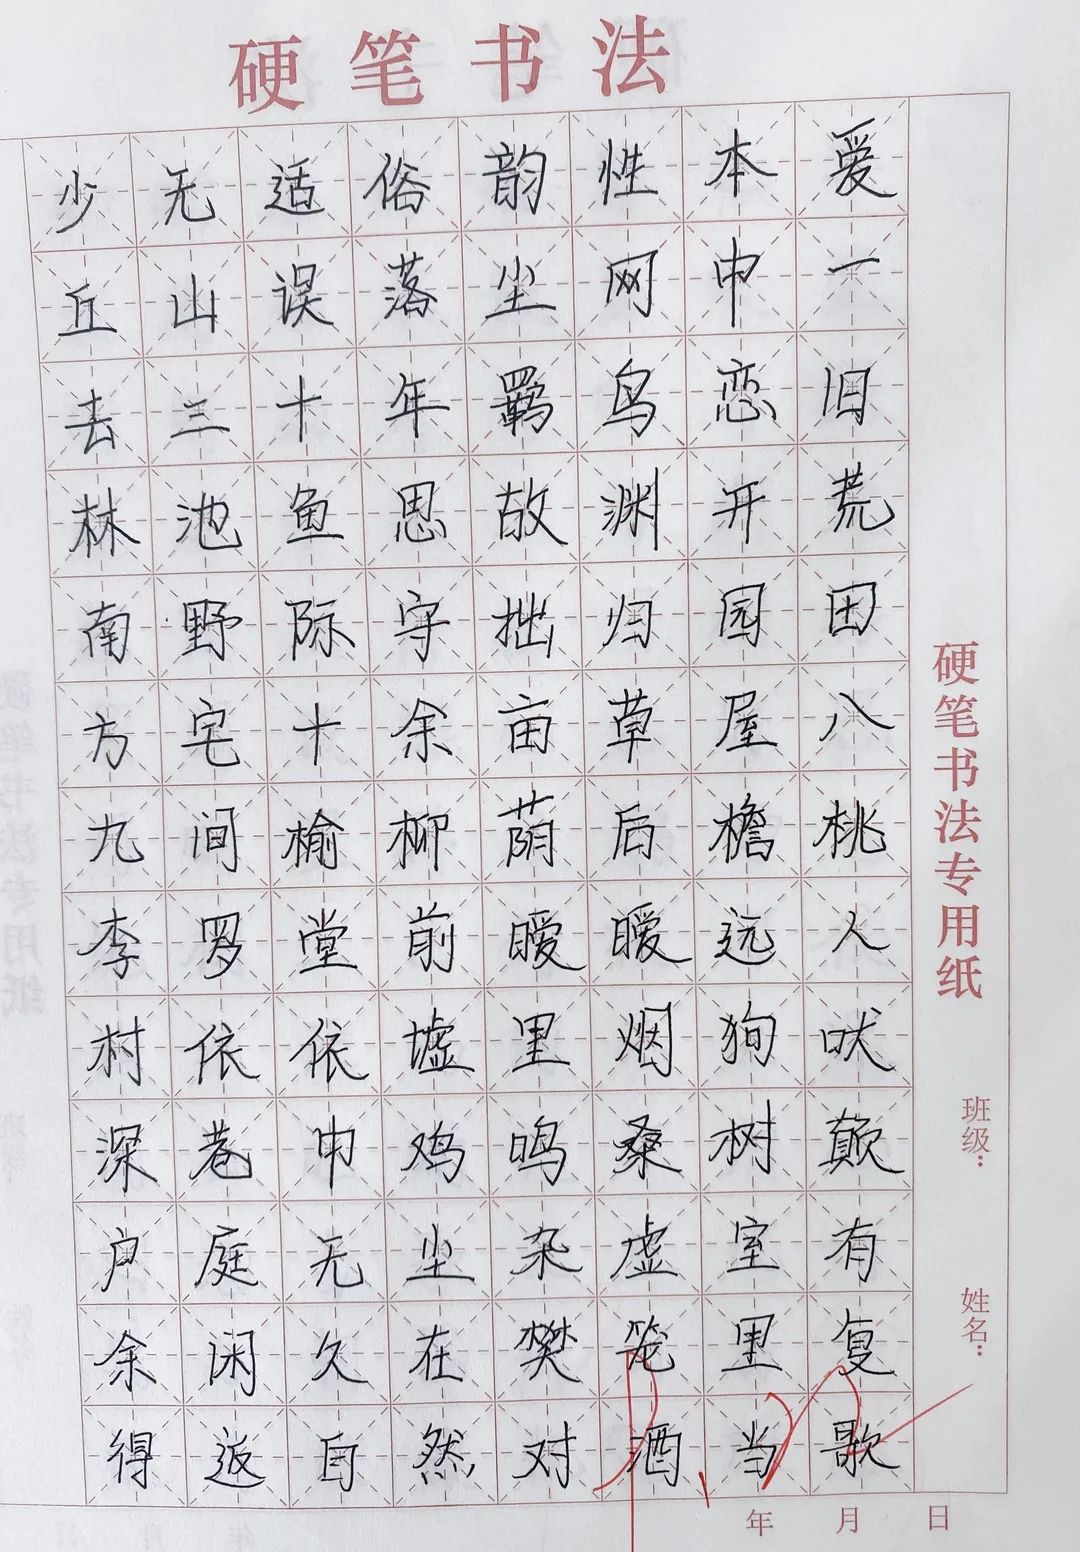 硬笔书法
少无适俗韵性本爱
丘山误落尘网中一
去三十年羁鸟恋旧
林池鱼思故渊开荒
南野际守拙归园田
方宅十余亩草屋八
九间榆柳荫后檐桃
李罗堂前暧暧远人
村依依墟里烟狗吠
深巷中鸡鸣桑树颠
户庭无尘杂虚室有
余闲久在樊笼里复
得返自然对酒当歌
硬笔书法专用纸
班级：
姓名：
年 月 日